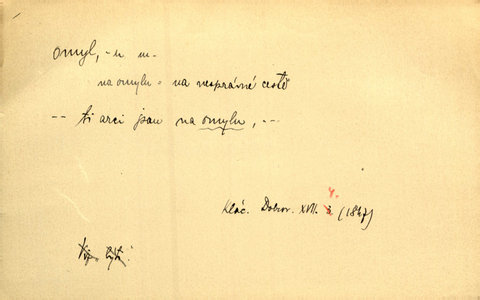 omyl, -u m.
na omylu = na nesprávné cestě
-- ti arci jsou na omylu, --
Klác. Dobrov. XVII. (1847)